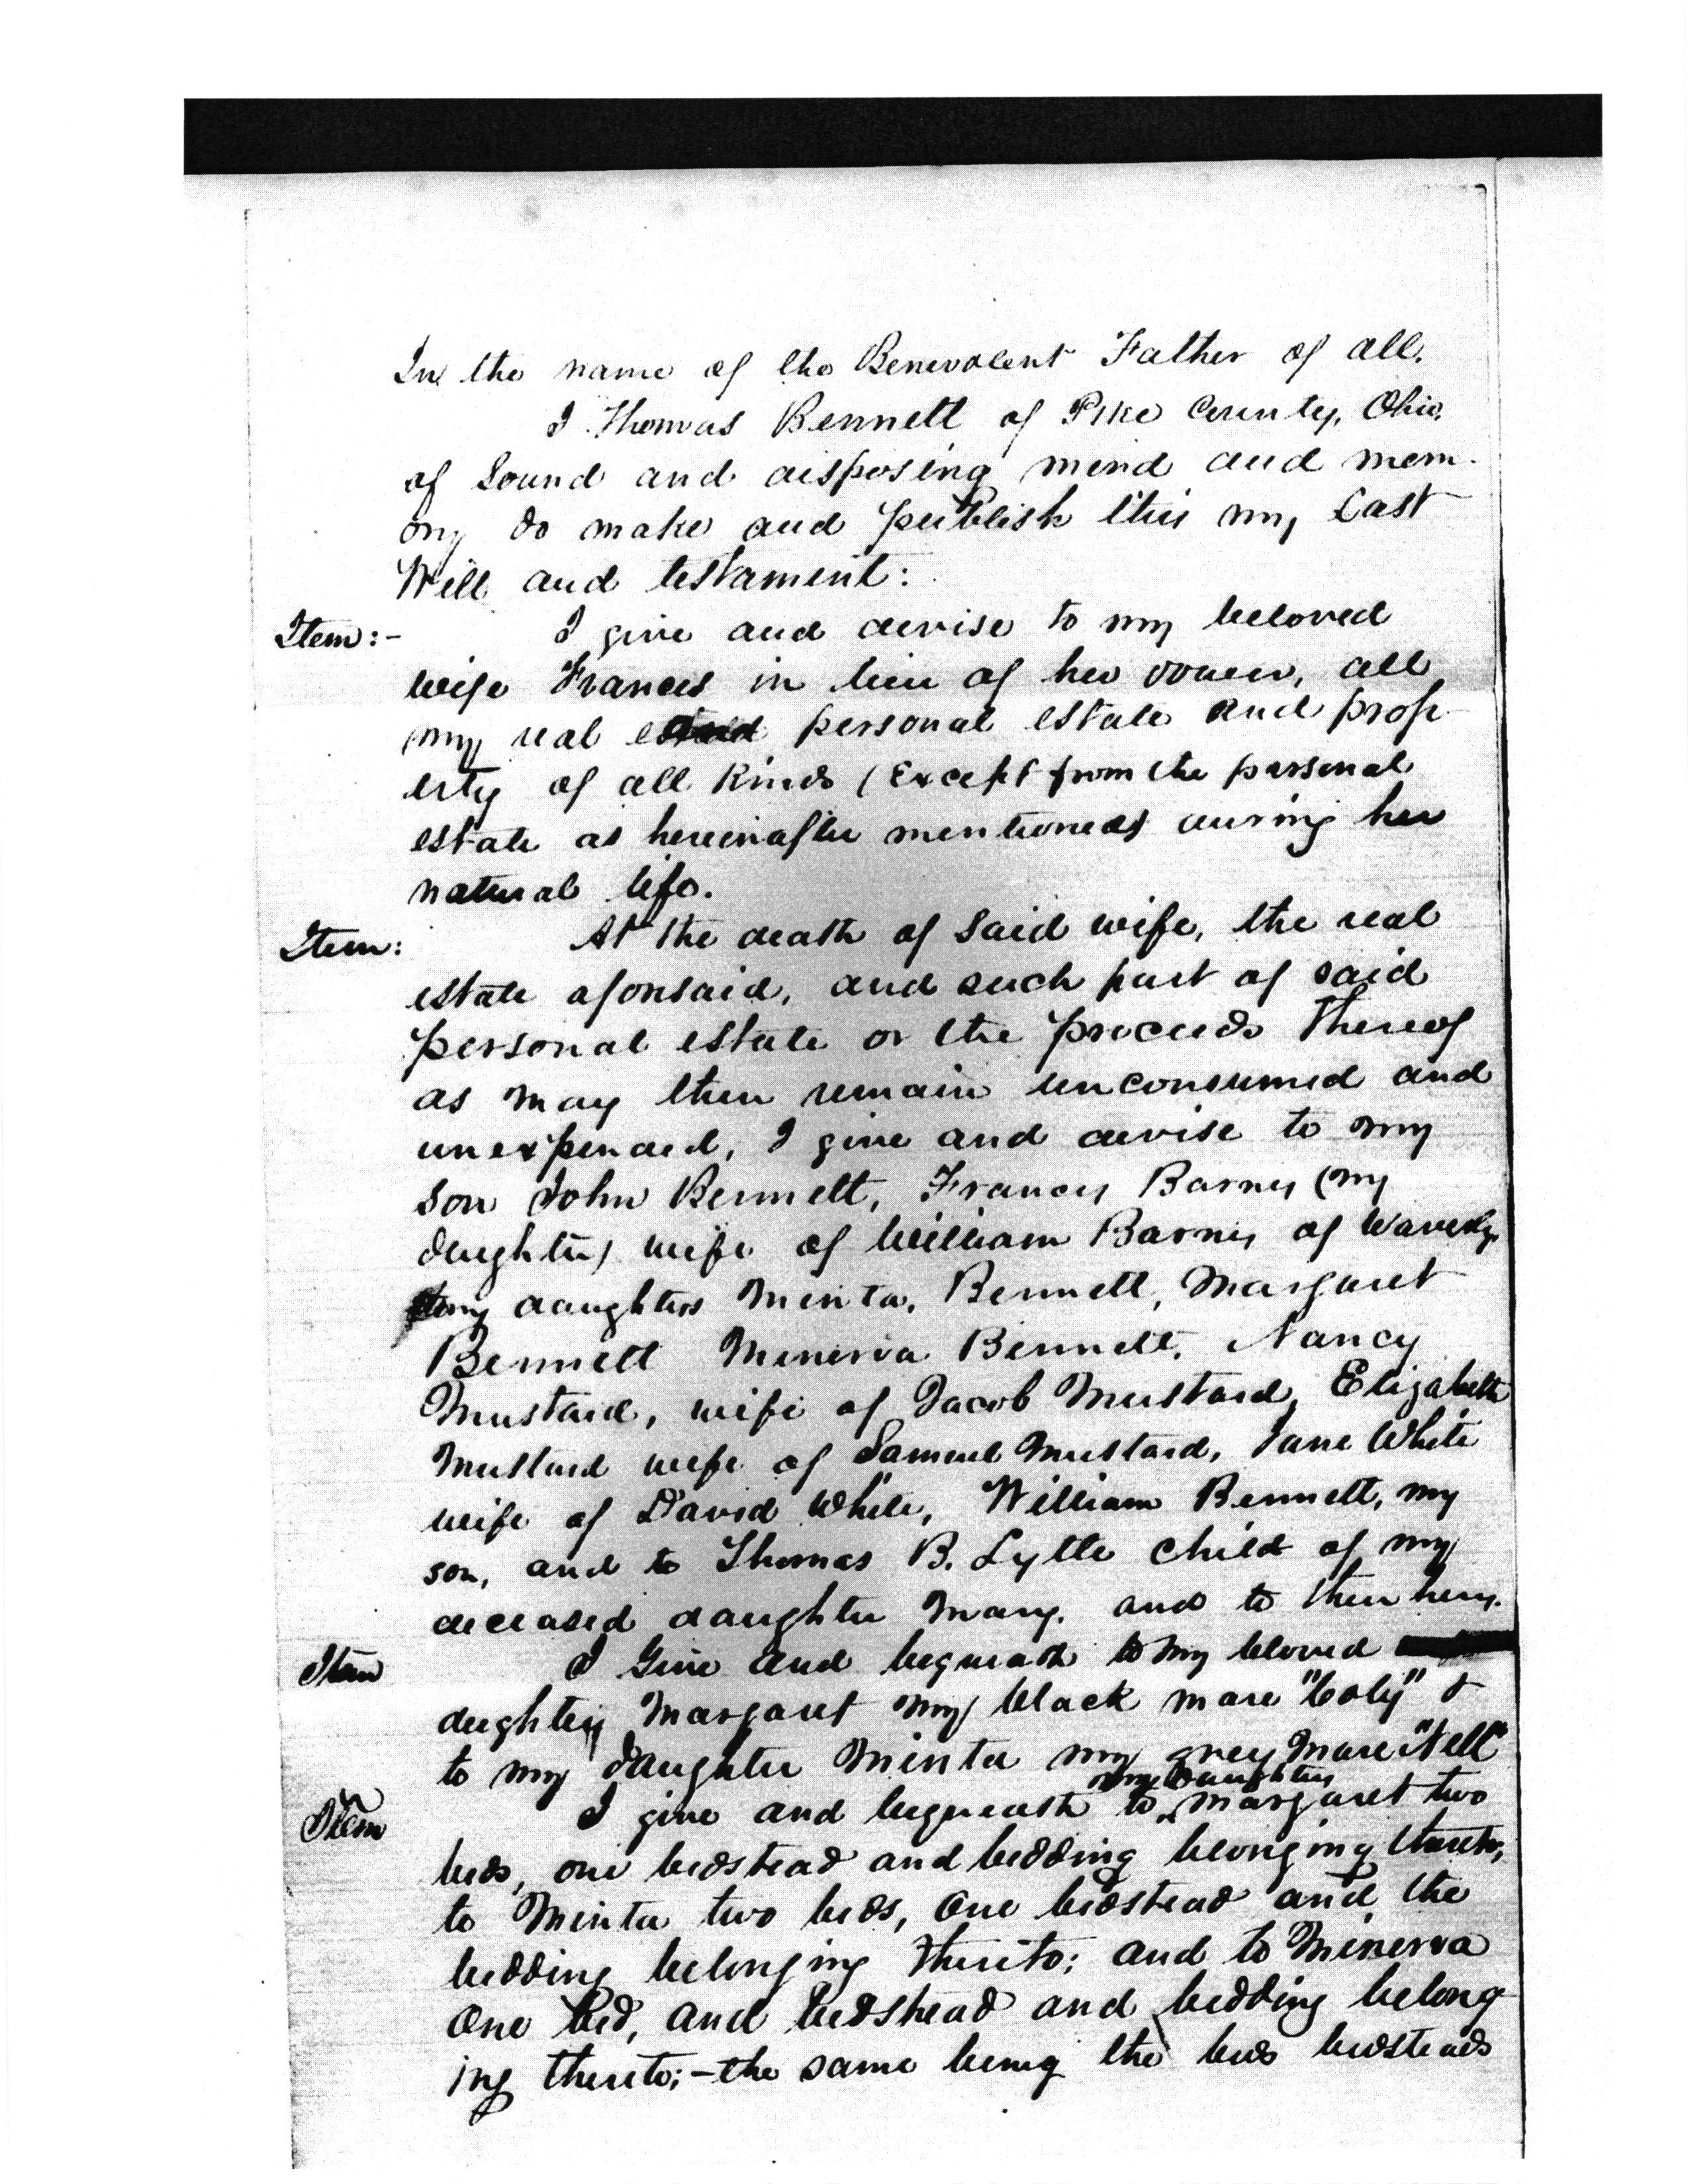 In the name of the Benevolent Father of all.
I Thomas Bennett of Pike County, Ohio,
of Sound and disposing mind and mem-
ory do make and publish this my Last
Will and testament:
Item:- I give and devise to my beloved
wife Frances in lieu of her dower, all
my real personal estate and prop-
erty of all Kinds (Except from the personal
estate as hereinafter mentioned) during her
natural life.
Item: At the death of Said wife, the real
estate aforesaid, and such part of said
personal estate or the proceeds thereof
as may then remain unconsumed and
unexpended, I give and devise to my
son John Bennett, Francis Barnes (my
daughter) wife of William Barnes of Waverly,
my daughters Minta, Bennett, Margaret
Bennett Minerva Bennett, Nancy
Mustard, wife of Jacob Mustard, Elizabeth
Mustard wife of Samuel Mustard, Jane White
wife of David White, William Bennett, my
son, and to Thomas B. Lytle child of my
deceased daughter Mary. and to their heirs.
Item I Give and bequeath to my beloved
daughter Margaret my black mare "Coly" &
to my daughter Minta my grey mare "Nell"
my daughter
Item I give and bequeath to Margaret two
beds, one bedstead and bedding belonging thereto,
to Minta two beds, One bedstead and the
bedding belonging thereto; and to Minerva
One bed, and bedshead and bedding belong
ing thereto;-the same being the beds bedsteads